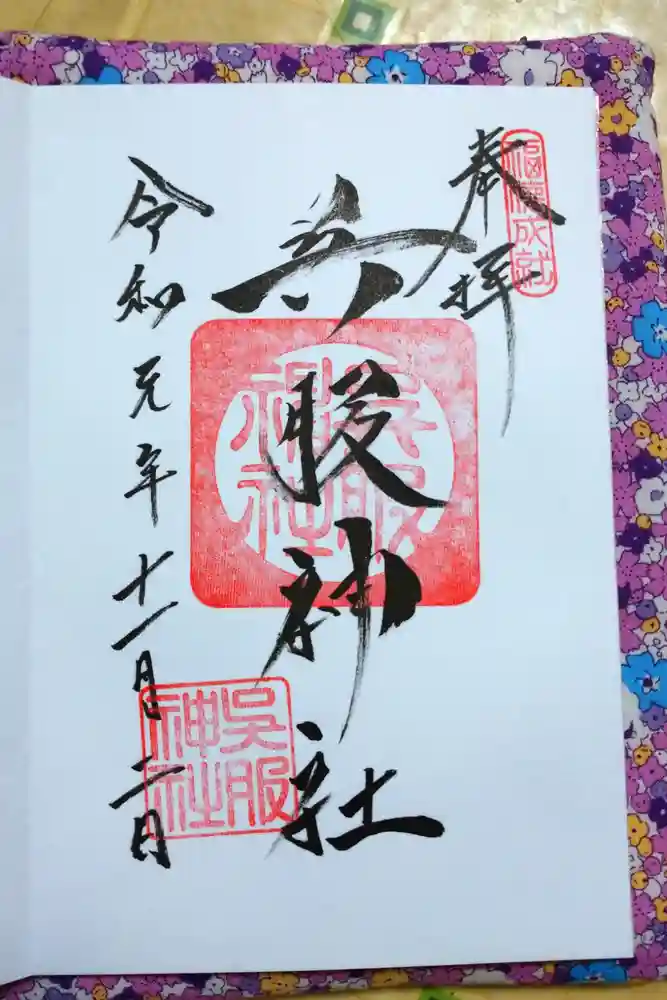 奉拝
福徳成就
呉服神社
呉服神社
令和元年十一月二日
呉服神社